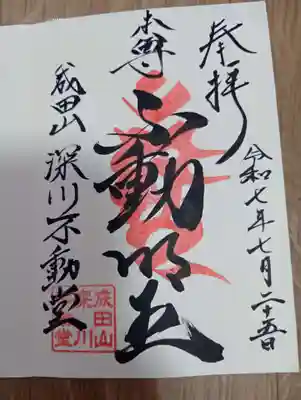 奉拝
令和七年七月二十五日
本尊
不動明王
成田山 深川不動堂
成田山
深川
堂